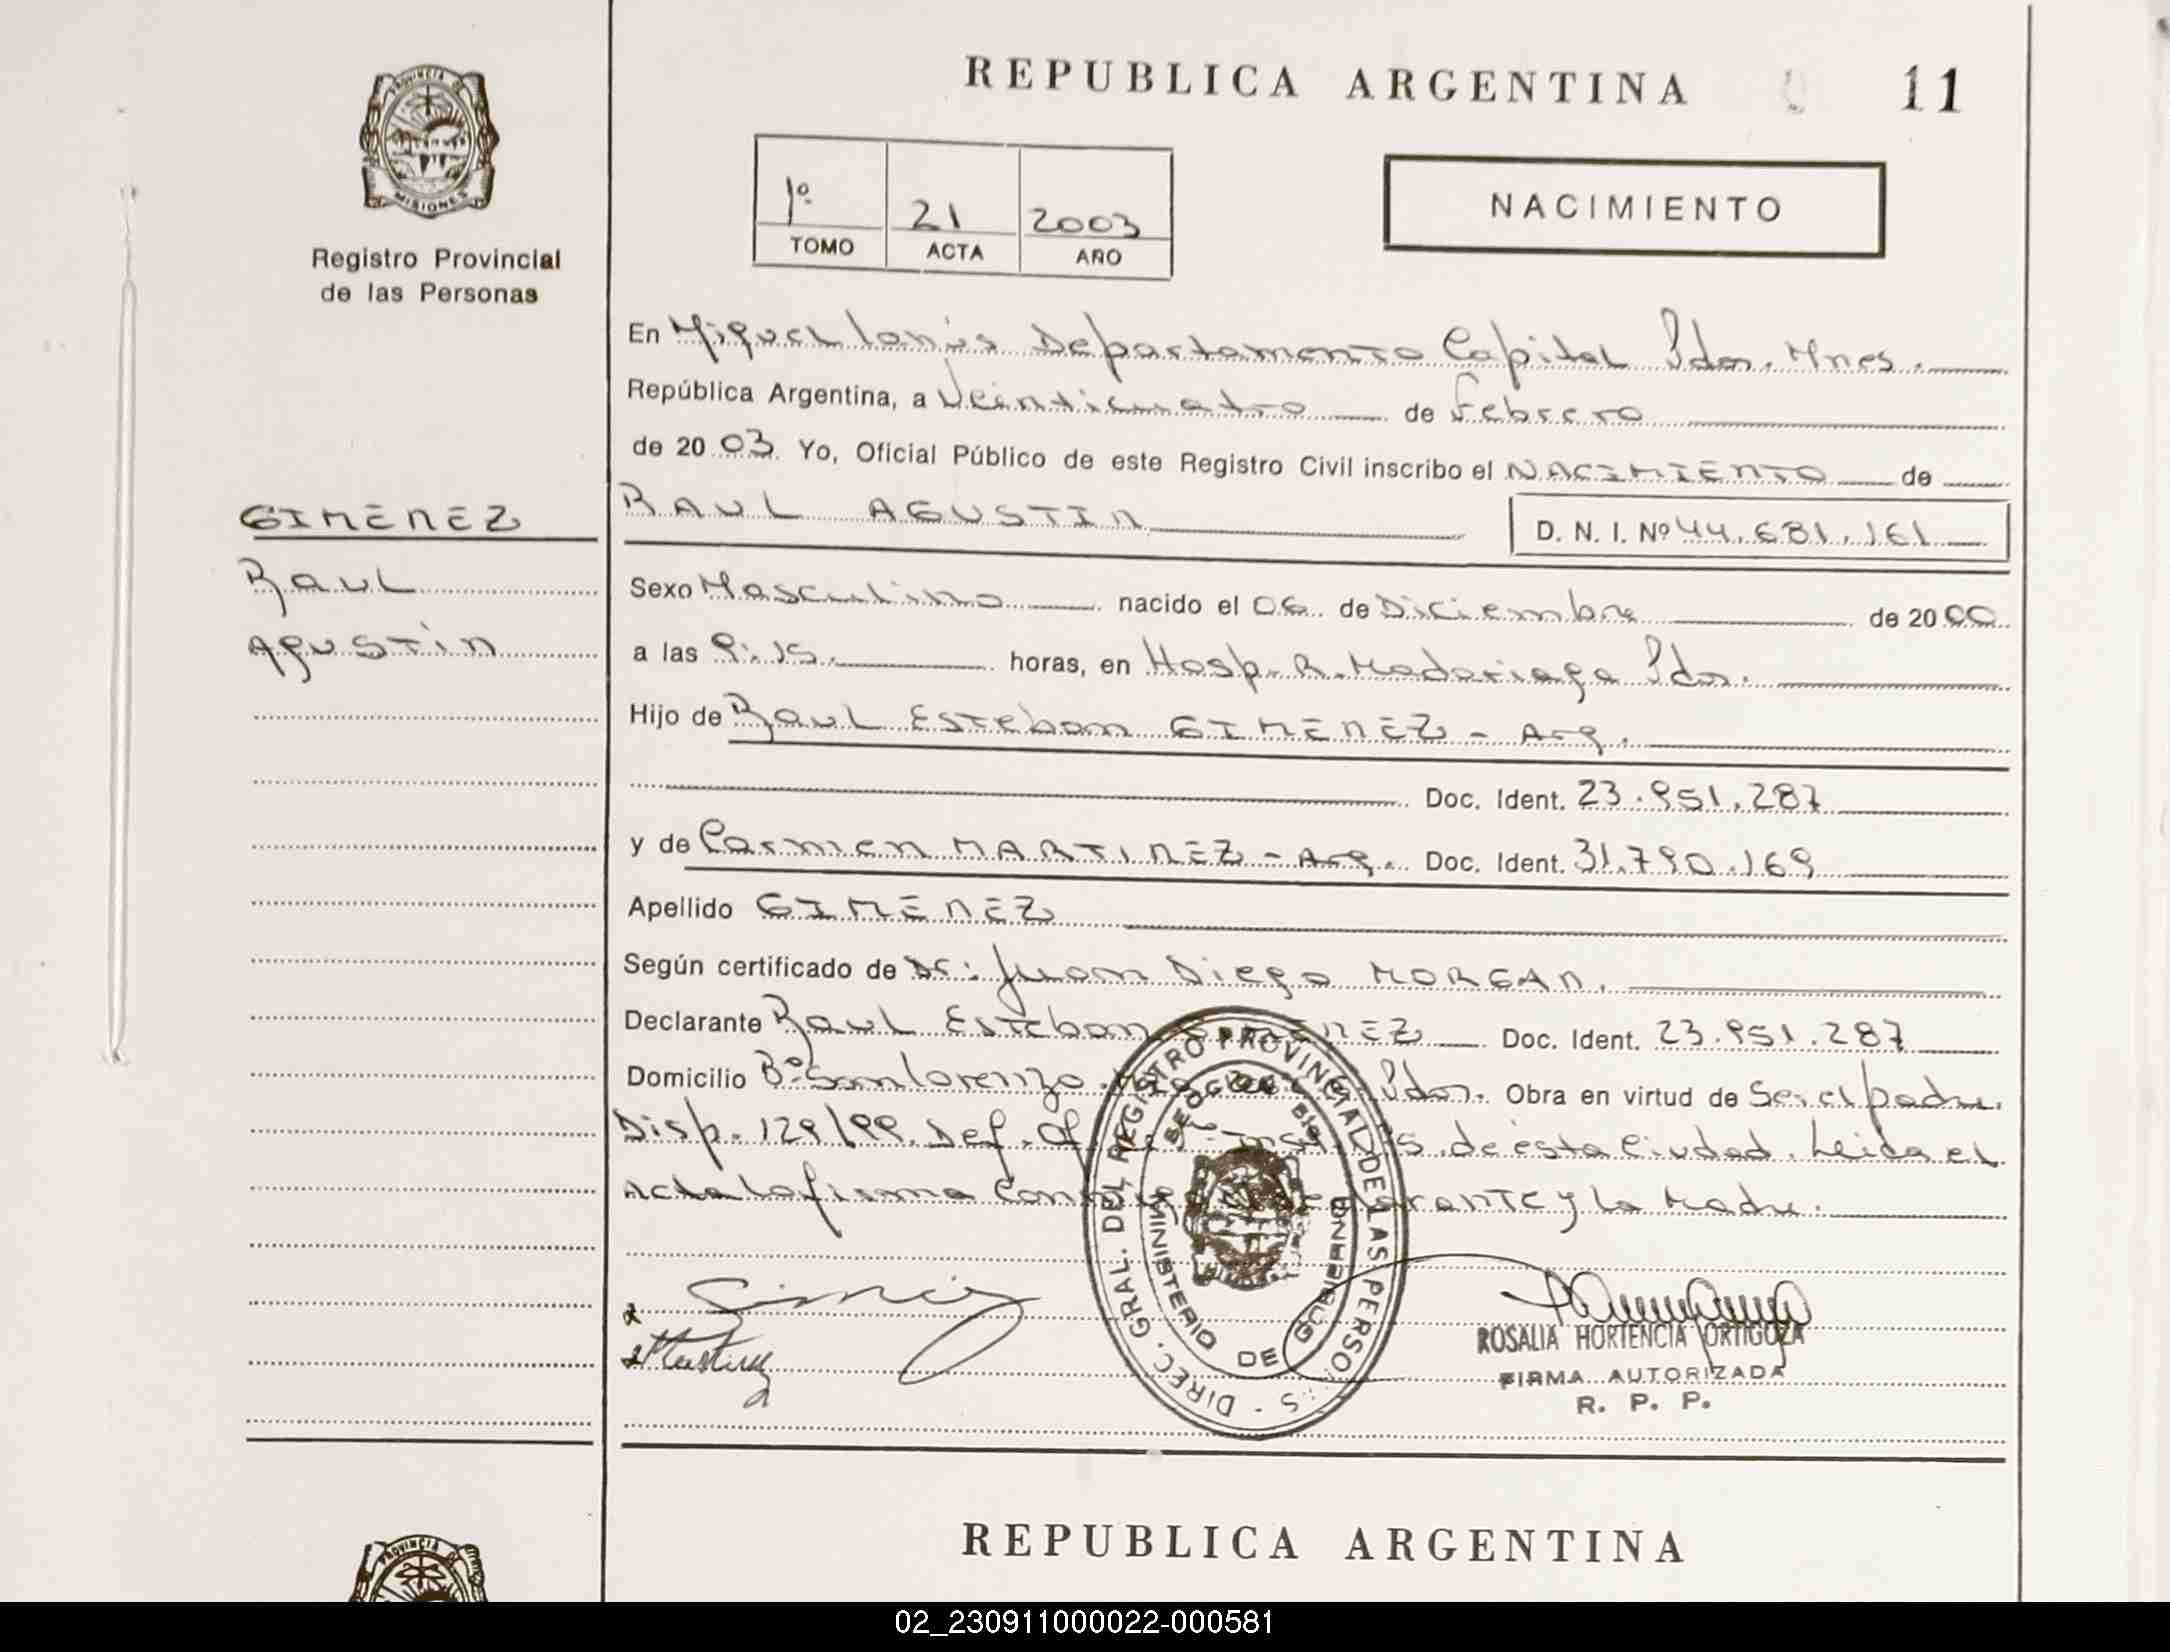 REPUBLICA ARGENTINA
11
PROVINCIA DE
MISIONES
Registro Provincial
de las Personas
1º 21 2003
TOMO ACTA AÑO
NACIMIENTO
En Miguel Lanús Departamento Capital Pdas. Mnes.
República Argentina, a Veinticuatro de Febrero
de 2003 Yo, Oficial Público de este Registro Civil inscribo el NACIMIENTO de
RAUL AGUSTIN
D. N. I. Nº 44.681.161
GIMENEZ
Raul
Agustin
Sexo Masculino nacido el 06 de Diciembre de 2000
a las 9:15. horas, en Hosp. R. Madariaga Pdas.
Hijo de Raul Esteban GIMENEZ - Arg.
Doc. Ident. 23.951.287
y de Carmen MARTINEZ - Arg. Doc. Ident. 31.790.169
Apellido GIMENEZ
Según certificado de Dr: Juan Diego MORGAN.
Declarante Raul Esteban GIMENEZ Doc. Ident. 23.951.287
Domicilio Bº San Lorenzo Pdas. Obra en virtud de Ser el padre.
Disp. 129/99. Def. Of. de esta Ciudad. Leida el
Acta la firma declarante y la Madre.
DIREC. GRAL. DEL REGISTRO PROVINCIAL DE LAS PERSONAS
MINISTERIO DE GOBIERNO
Martinez
ROSALIA HORTENCIA ORTIGOZA
FIRMA AUTORIZADA
R. P. P.
REPUBLICA ARGENTINA
PROVINCIA
02_230911000022-000581